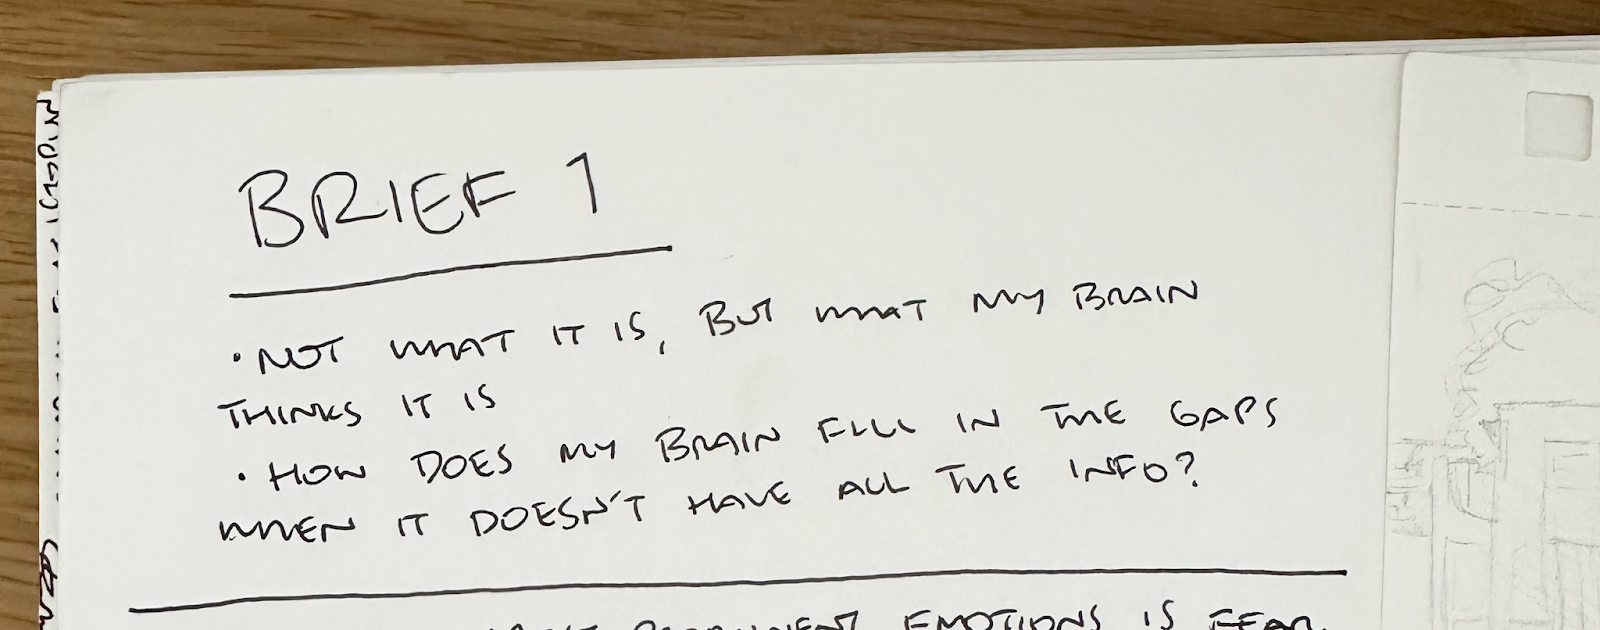 BRIEF 1
• NOT WHAT IT IS, BUT WHAT MY BRAIN
THINKS IT IS
• HOW DOES MY BRAIN FILL IN THE GAPS
WHEN IT DOESN'T HAVE ALL THE INFO?
PROMINENT EMOTIONS IS FEAR.